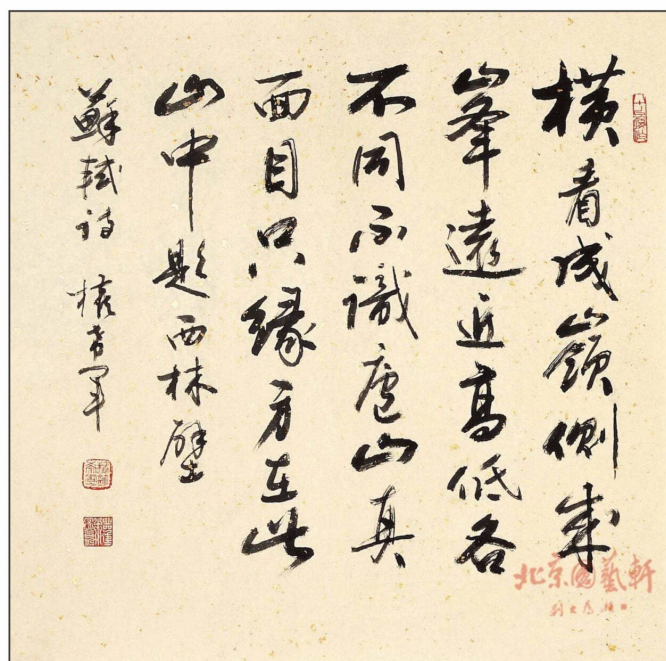 橫看成嶺側成
峯遠近高低各
不同不識廬山真
面目只緣身在此
山中題西林壁
蘇軾詩 權希軍
北京國藝軒